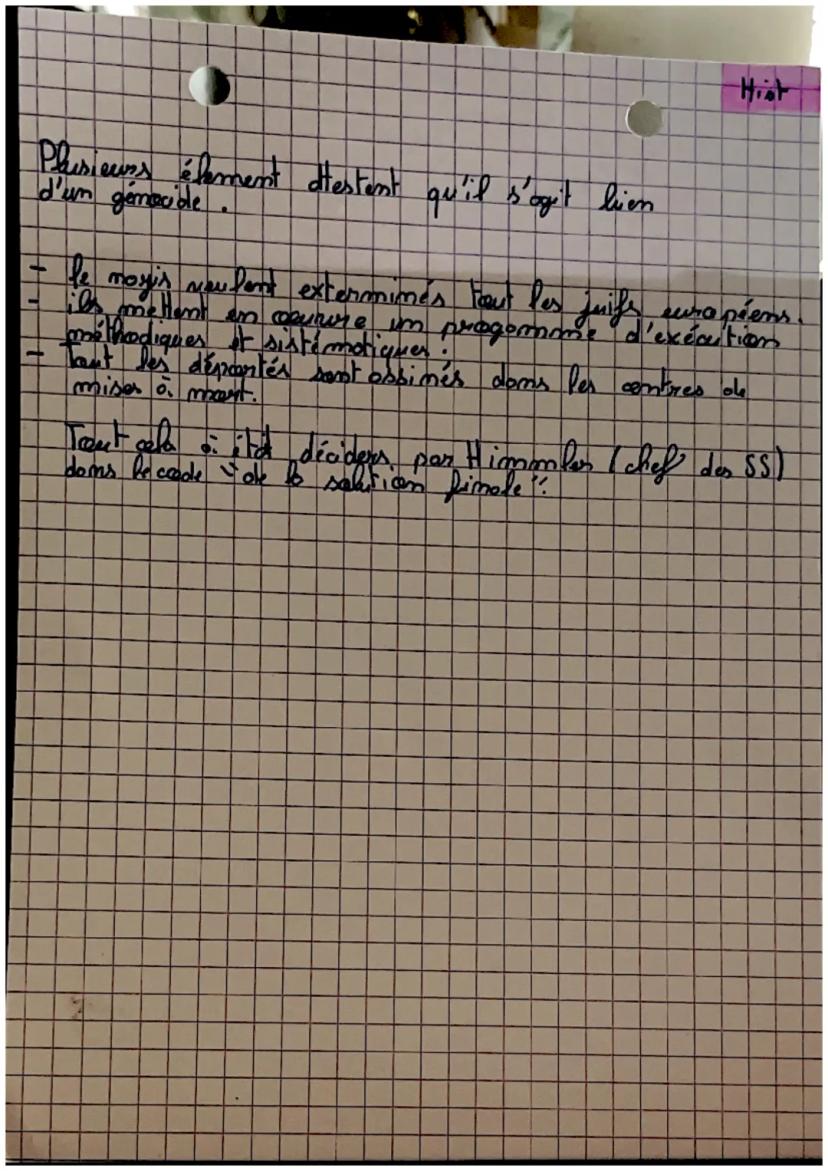 Hist
Plusieurs élement attestent qu'il s'agit bien
d'un génocide.
- le nazis veulent exterminés tout les juifs européens.
- ils mettent en oeuvre un progamme d'exécution
méthodiques et sistématiques.
- tout les déportés sont assinés dans les centres de
mises à mort.
Tout cela à été déciders par Himmler (chef des SS)
dans le cade "de la solution finale".